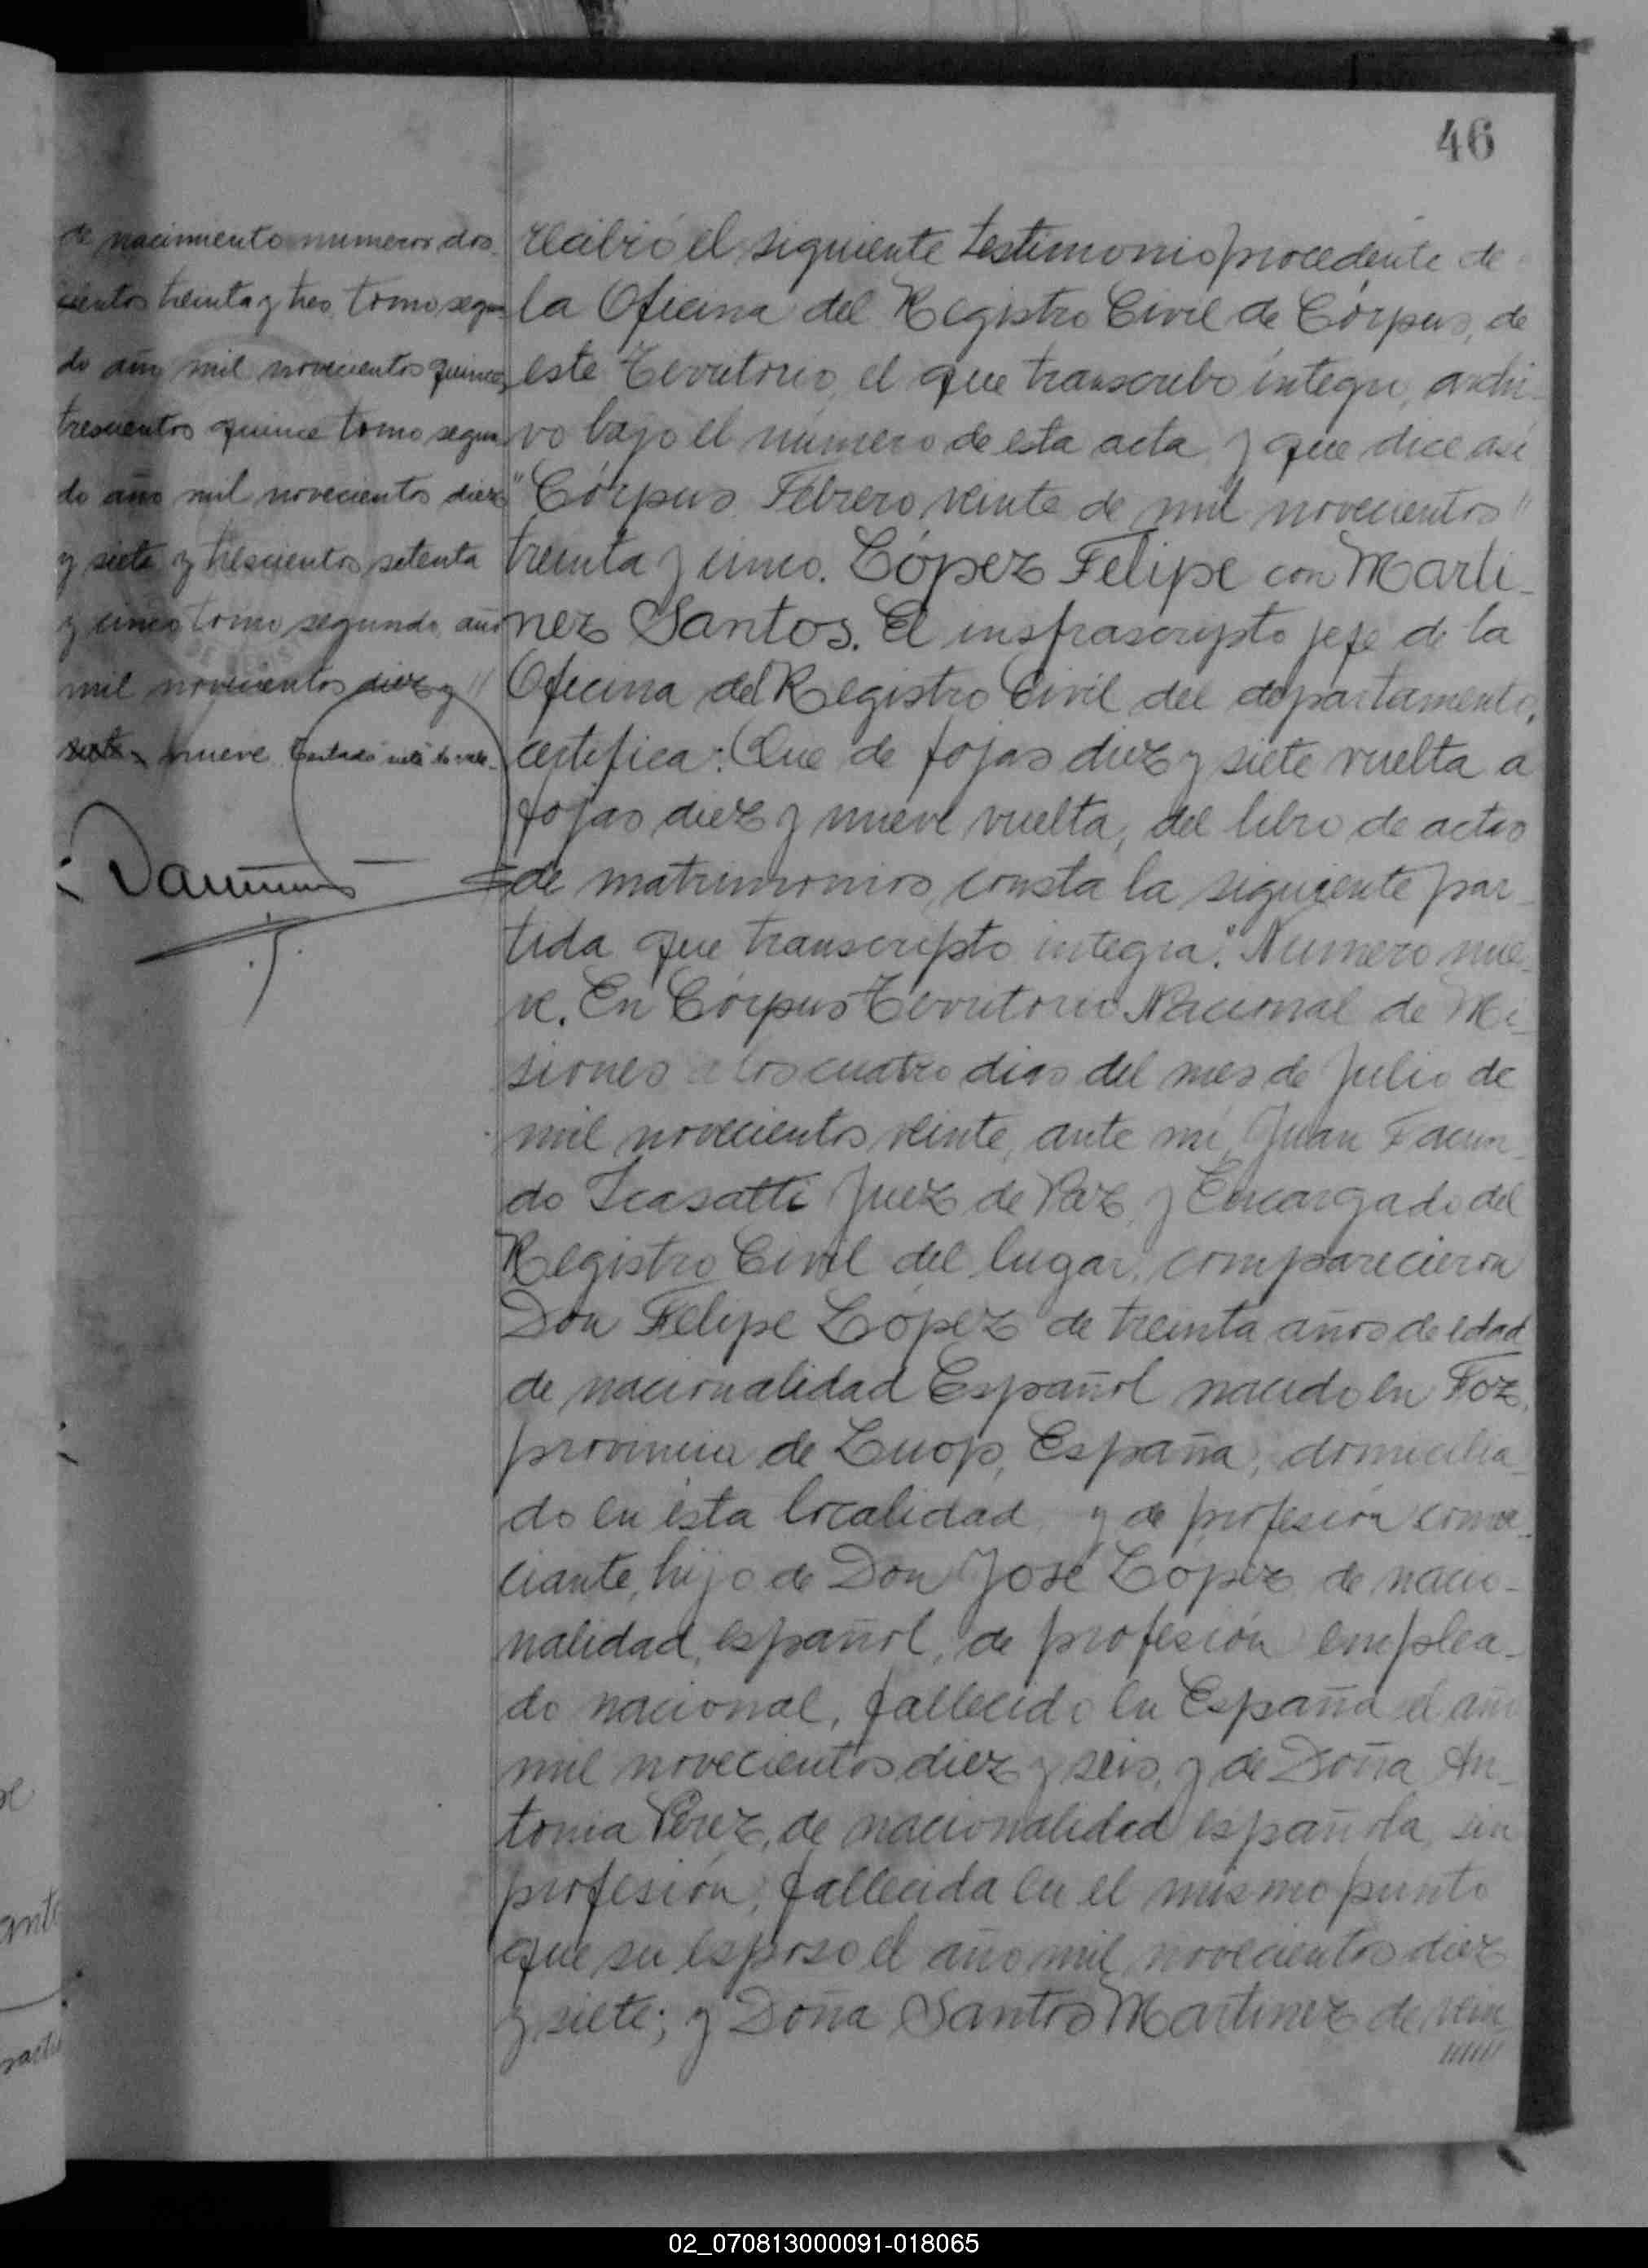 46
de nacimiento numeros dos
cientos treinta y tres, tomo segun
do año mil novecientos quince,
trescientos quince tomo segun
do año mil novecientos diez
y siete y trescientos setenta
y cinco tomo segundo, año
mil novecientos diez y //
siete nueve. Testado siete no vale.
recibió el siguiente testimonio procedente de
la Oficina del Registro Civil de Córpus, de
este Territorio, el que transcribo integro, archi-
vo bajo el número de esta acta y que dice así
"Córpus Febrero veinte de mil novecientos //
treinta y cinco. López Felipe con Marti-
nez Santos. El insfrascripto jefe de la
Oficina del Registro Civil del departamento,
certifica: Que de fojas diez y siete vuelta a
fojas diez y nueve vuelta, del libro de actas
de matrimonios, consta la siguiente par-
tida que transcripto integra: "Numero nue-
ve. En Córpus Territorio Nacional de Mi-
siones a los cuatro dias del mes de Julio de
mil novecientos veinte, ante mi, Juan Facun-
do Icasatti Juez de Paz, y Encargado del
Registro Civil del lugar, comparecieron
Don Felipe López de treinta años de edad
de nacionalidad Español nacido en Foz,
provincia de Luop, España, domicilia-
do en ésta localidad, y de profesión comer-
ciante, hijo de Don José López de nacio-
nalidad, español, de profesión emplea-
do nacional, fallecido en España el año
mil novecientos diez y seis, y de Doña An-
tonia Pérez, de nacionalidad española, sin
profesión, fallecida en el mismo punto
que su esposo el año mil novecientos diez
y siete; y Doña Santos Martinez de vein
02_070813000091-018065